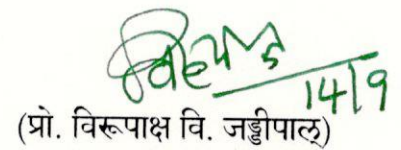 14/9
(प्रो. विरूपाक्ष वि. जड्डीपाल्)